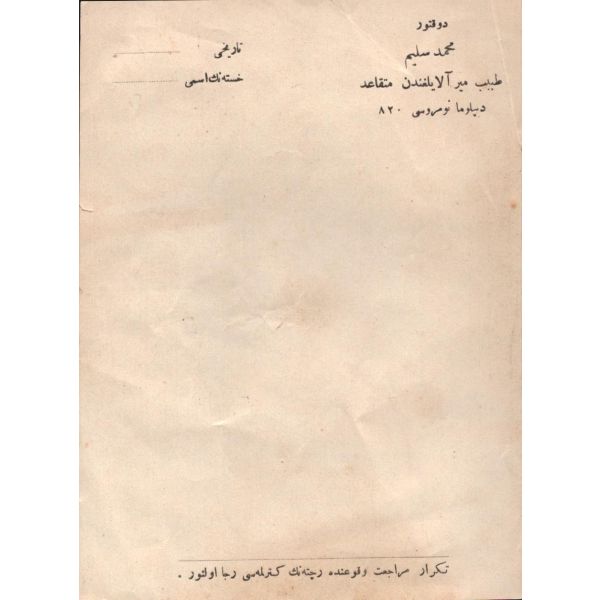 دوقتور
محمد سليم
طبيب مير آلايلغندن متقاعد
ديپلوما نومروسى ۸۲۰
تاريخى
خسته‌نك اسمى
تكرار مراجعت وقوعنده رچته‌نك كترلمه‌سى رجا اولنور .